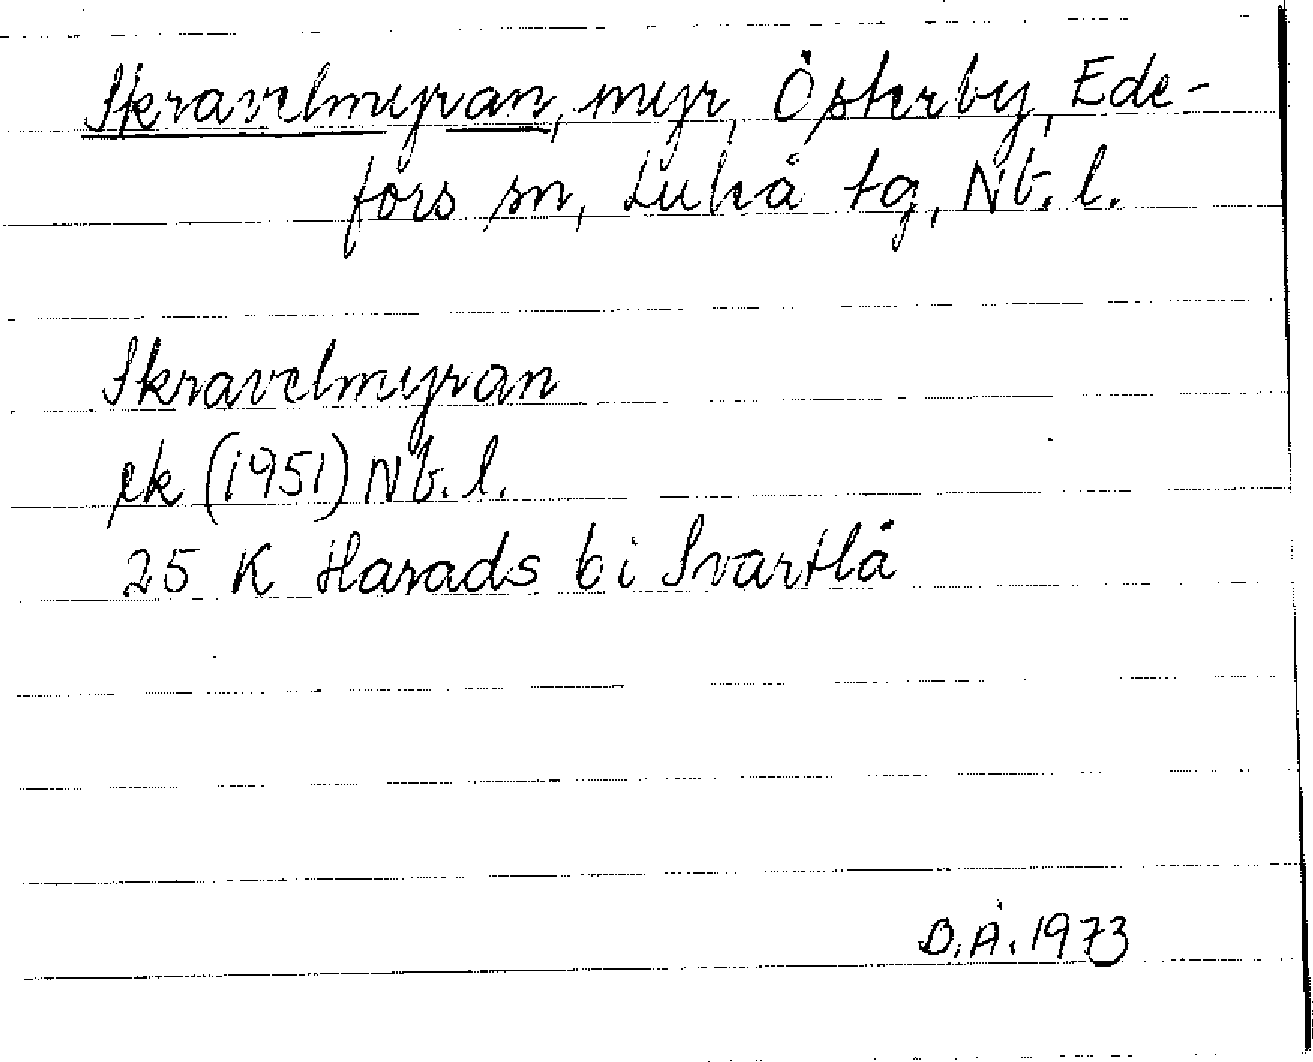 Skravelmyran, myr, Österby, Ede-
fors sn, Luleå tg, Nb. l.
Skravelmyran
ek (1951) Nb. l.
25 K Harads b i Svartlå
B.Å. 1973